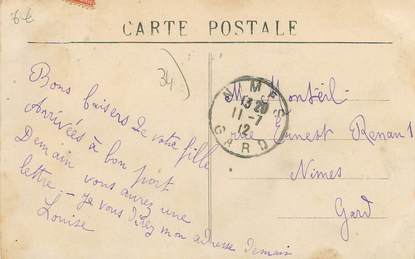 6€
CARTE POSTALE
34
Bons baisers de votre fille
Arrivées à bon port
Demain vous aurez une
lettre. - Je vous direz mon adresse demain
Louise
NIMES
13 20
11-7
12
GARD
M. Montéil
rue Ernest Renan 1
Nimes
Gard